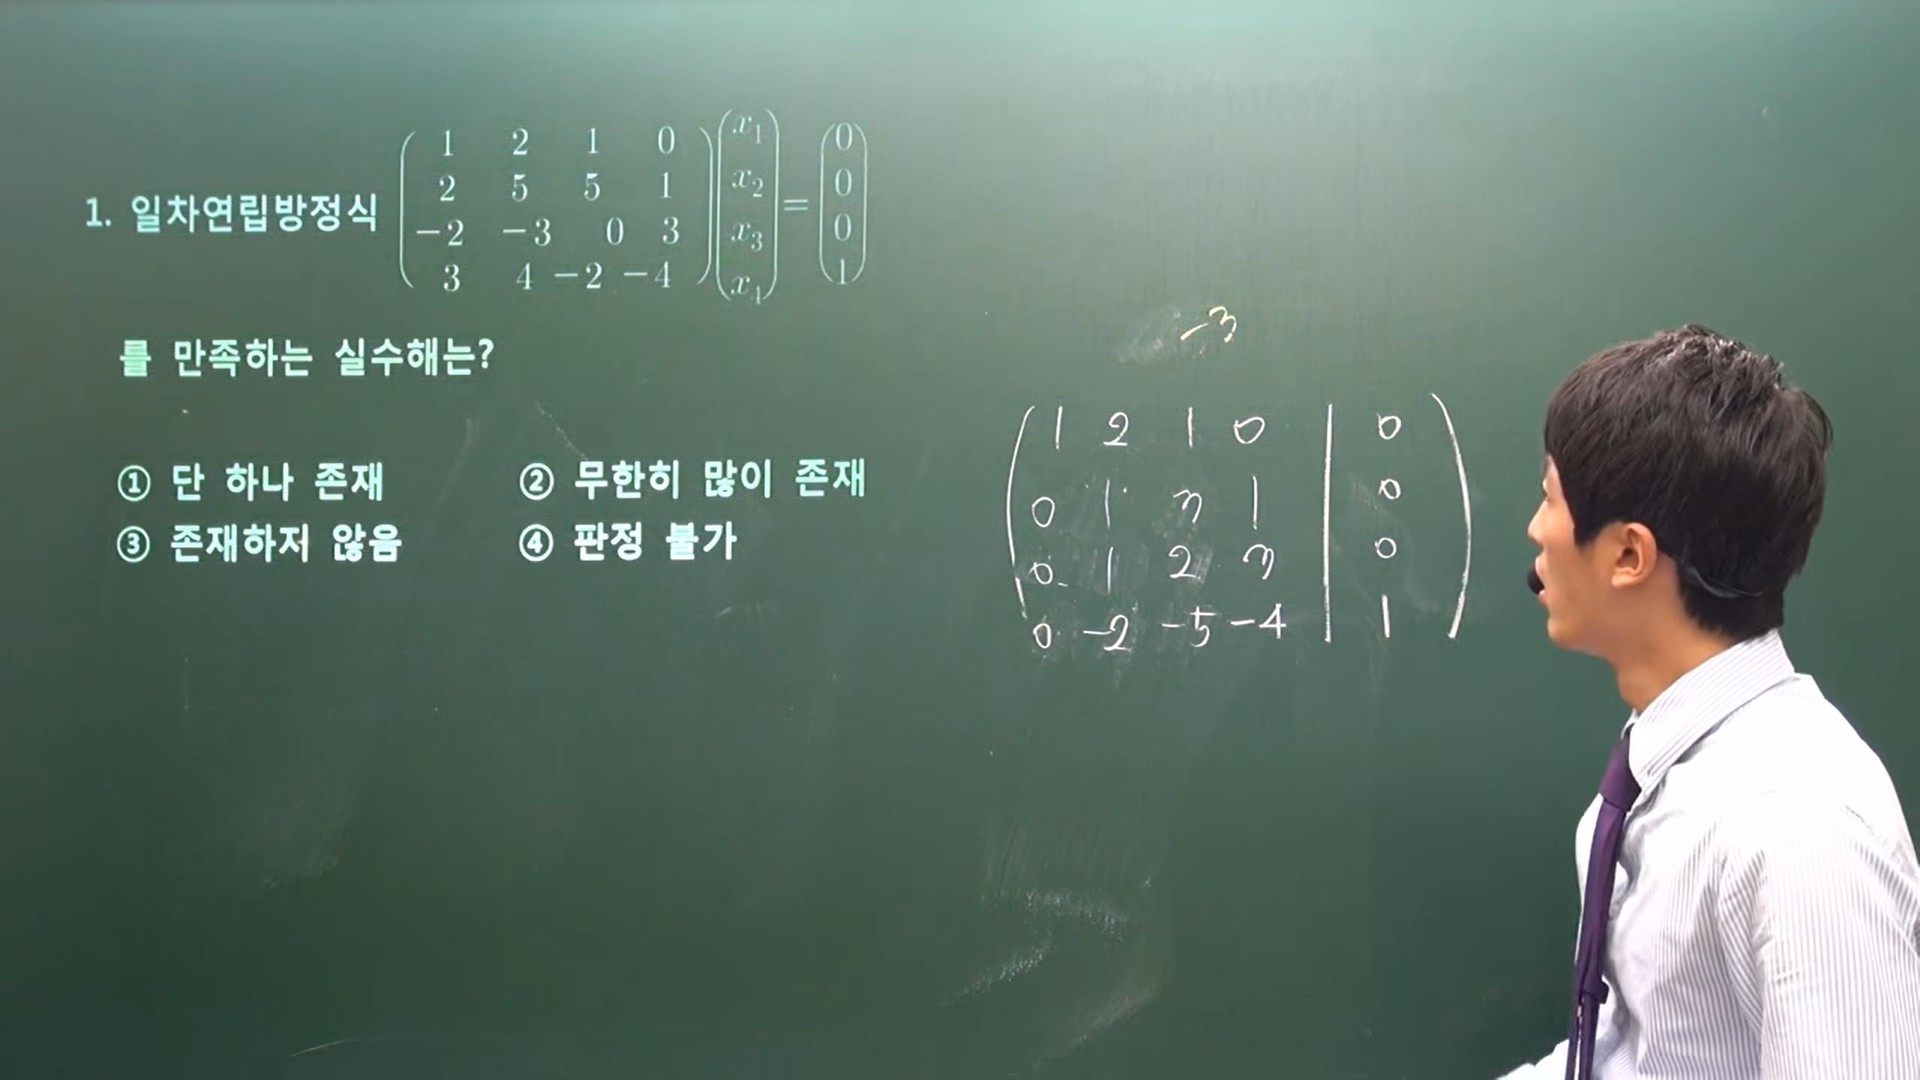 1. 일차연립방정식 ( 1 2 1 0 ) ( x₁ ) = ( 0 )
( 2 5 5 1 ) ( x₂ ) ( 0 )
( −2 −3 0 3 ) ( x₃ ) ( 0 )
( 3 4 −2 −4 ) ( x₄ ) ( 1 )
를 만족하는 실수해는?
① 단 하나 존재 ② 무한히 많이 존재
③ 존재하지 않음 ④ 판정 불가
-3
( 1 2 1 0 | 0 )
( 0 1 3 1 | 0 )
( 0 1 2 3 | 0 )
( 0 -2 -5 -4 | 1 )